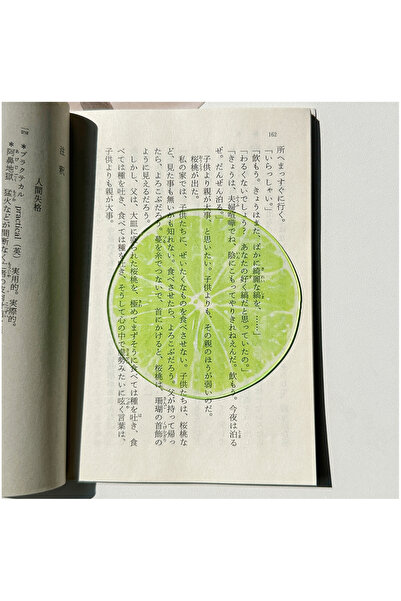 162
所へまっすぐに行く。
「いらっしゃい。」
「飲もう。きょうはまた、ばかに綺麗な縞を、……」
「わるくないでしょう？ あなたの好く縞だと思っていたの。」
「きょうは、夫婦喧嘩でね、陰にこもってやりきれねえんだ。飲もう。今夜は泊る
ぜ。だんぜん泊る。」
子供より親が大事、と思いたい。子供よりも、その親のほうが弱いのだ。
桜桃が出た。
私の家では、子供たちに、ぜいたくなものを食べさせない。子供たちは、桜桃な
ど、見た事も無いかも知れない。食べさせたら、よろこぶだろう。父が持って帰っ
たら、よろこぶだろう。蔓を糸でつないで、首にかけると、桜桃は、珊瑚の首飾の
ように見えるだろう。
しかし、父は、大皿に盛られた桜桃を、極めてまずそうに食べては種を吐き、食
べては種を吐き、食べては種を吐き、そうして心の中で虚勢みたいに呟く言葉は、
子供よりも親が大事。
注釈
人間失格
＊プラクテカル practical（英）実用的。実際的。
＊阿鼻地獄